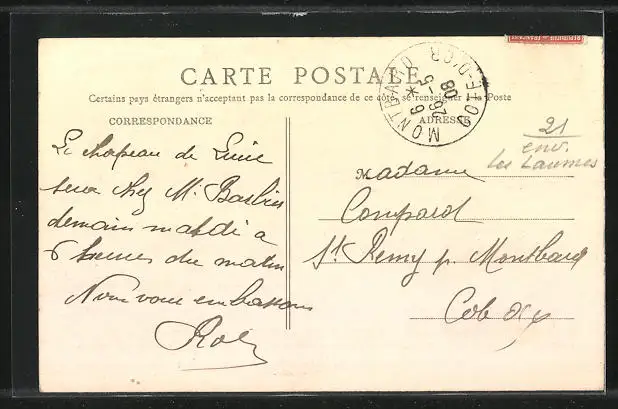 CARTE POSTALE
Certains pays étrangers n'acceptant pas la correspondance de ce côté, se renseigner à la Poste
CORRESPONDANCE
Le chapeau de
sera chez Mr
demain mardi a
6 heures du matin
Nous vous embrassons
MONTBARD CÔTE-D'OR
26 -5 08
ADRESSE
21
env.
les Laumes
Madame
St Remy p. Montbard
Côte d'Or